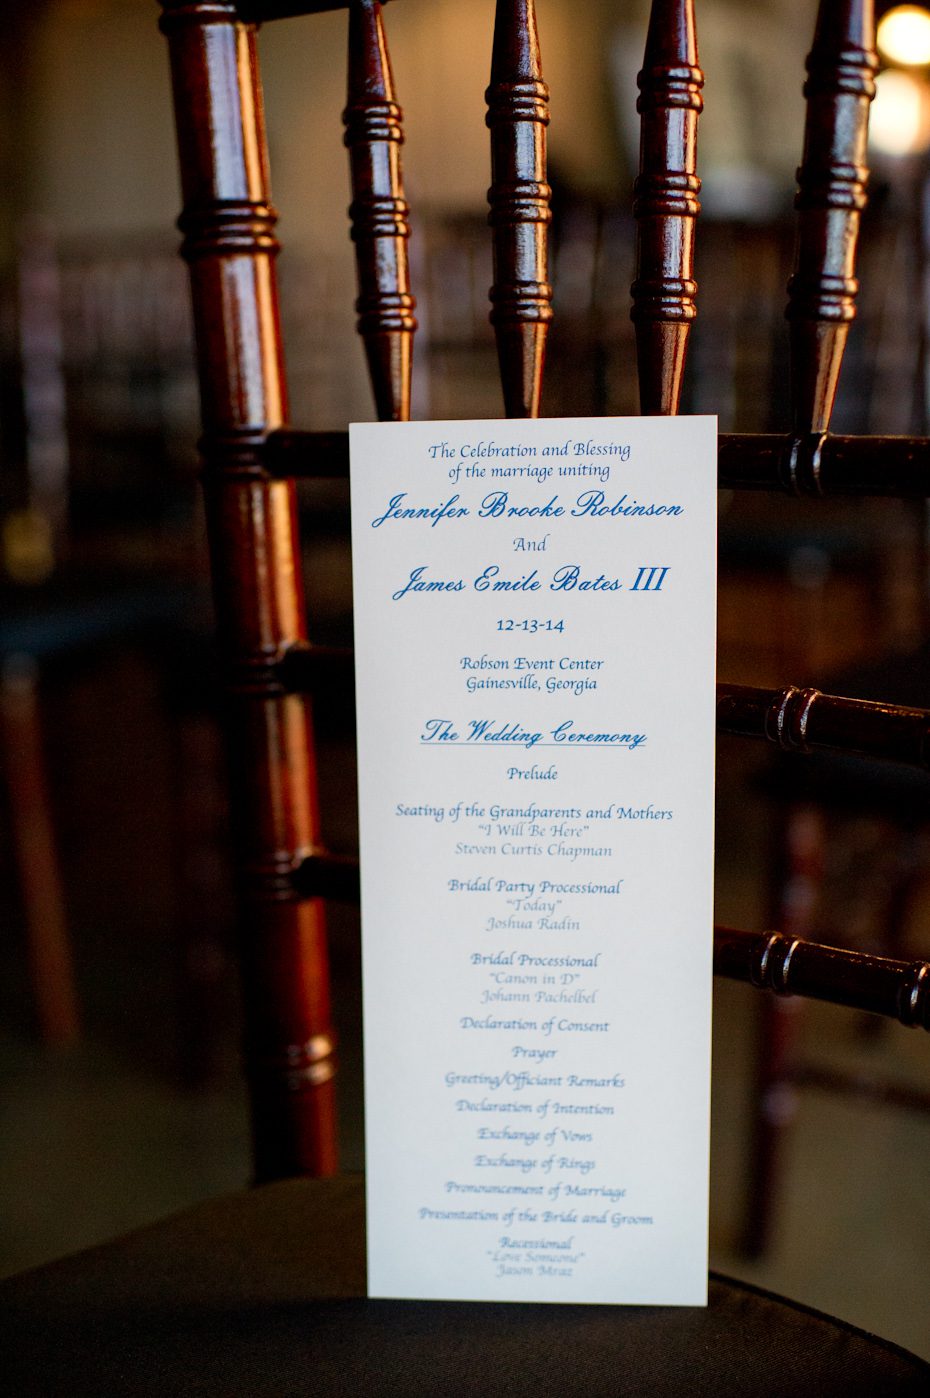 The Celebration and Blessing
of the marriage uniting
Jennifer Brooke Robinson
And
James Emile Bates III
12-13-14
Robson Event Center
Gainesville, Georgia
The Wedding Ceremony
Prelude
Seating of the Grandparents and Mothers
"I Will Be Here"
Steven Curtis Chapman
Bridal Party Processional
"Today"
Joshua Radin
Bridal Processional
"Canon in D"
Johann Pachelbel
Declaration of Consent
Prayer
Greeting/Officiant Remarks
Declaration of Intention
Exchange of Vows
Exchange of Rings
Pronouncement of Marriage
Presentation of the Bride and Groom
Recessional
"Love Someone"
Jason Mraz